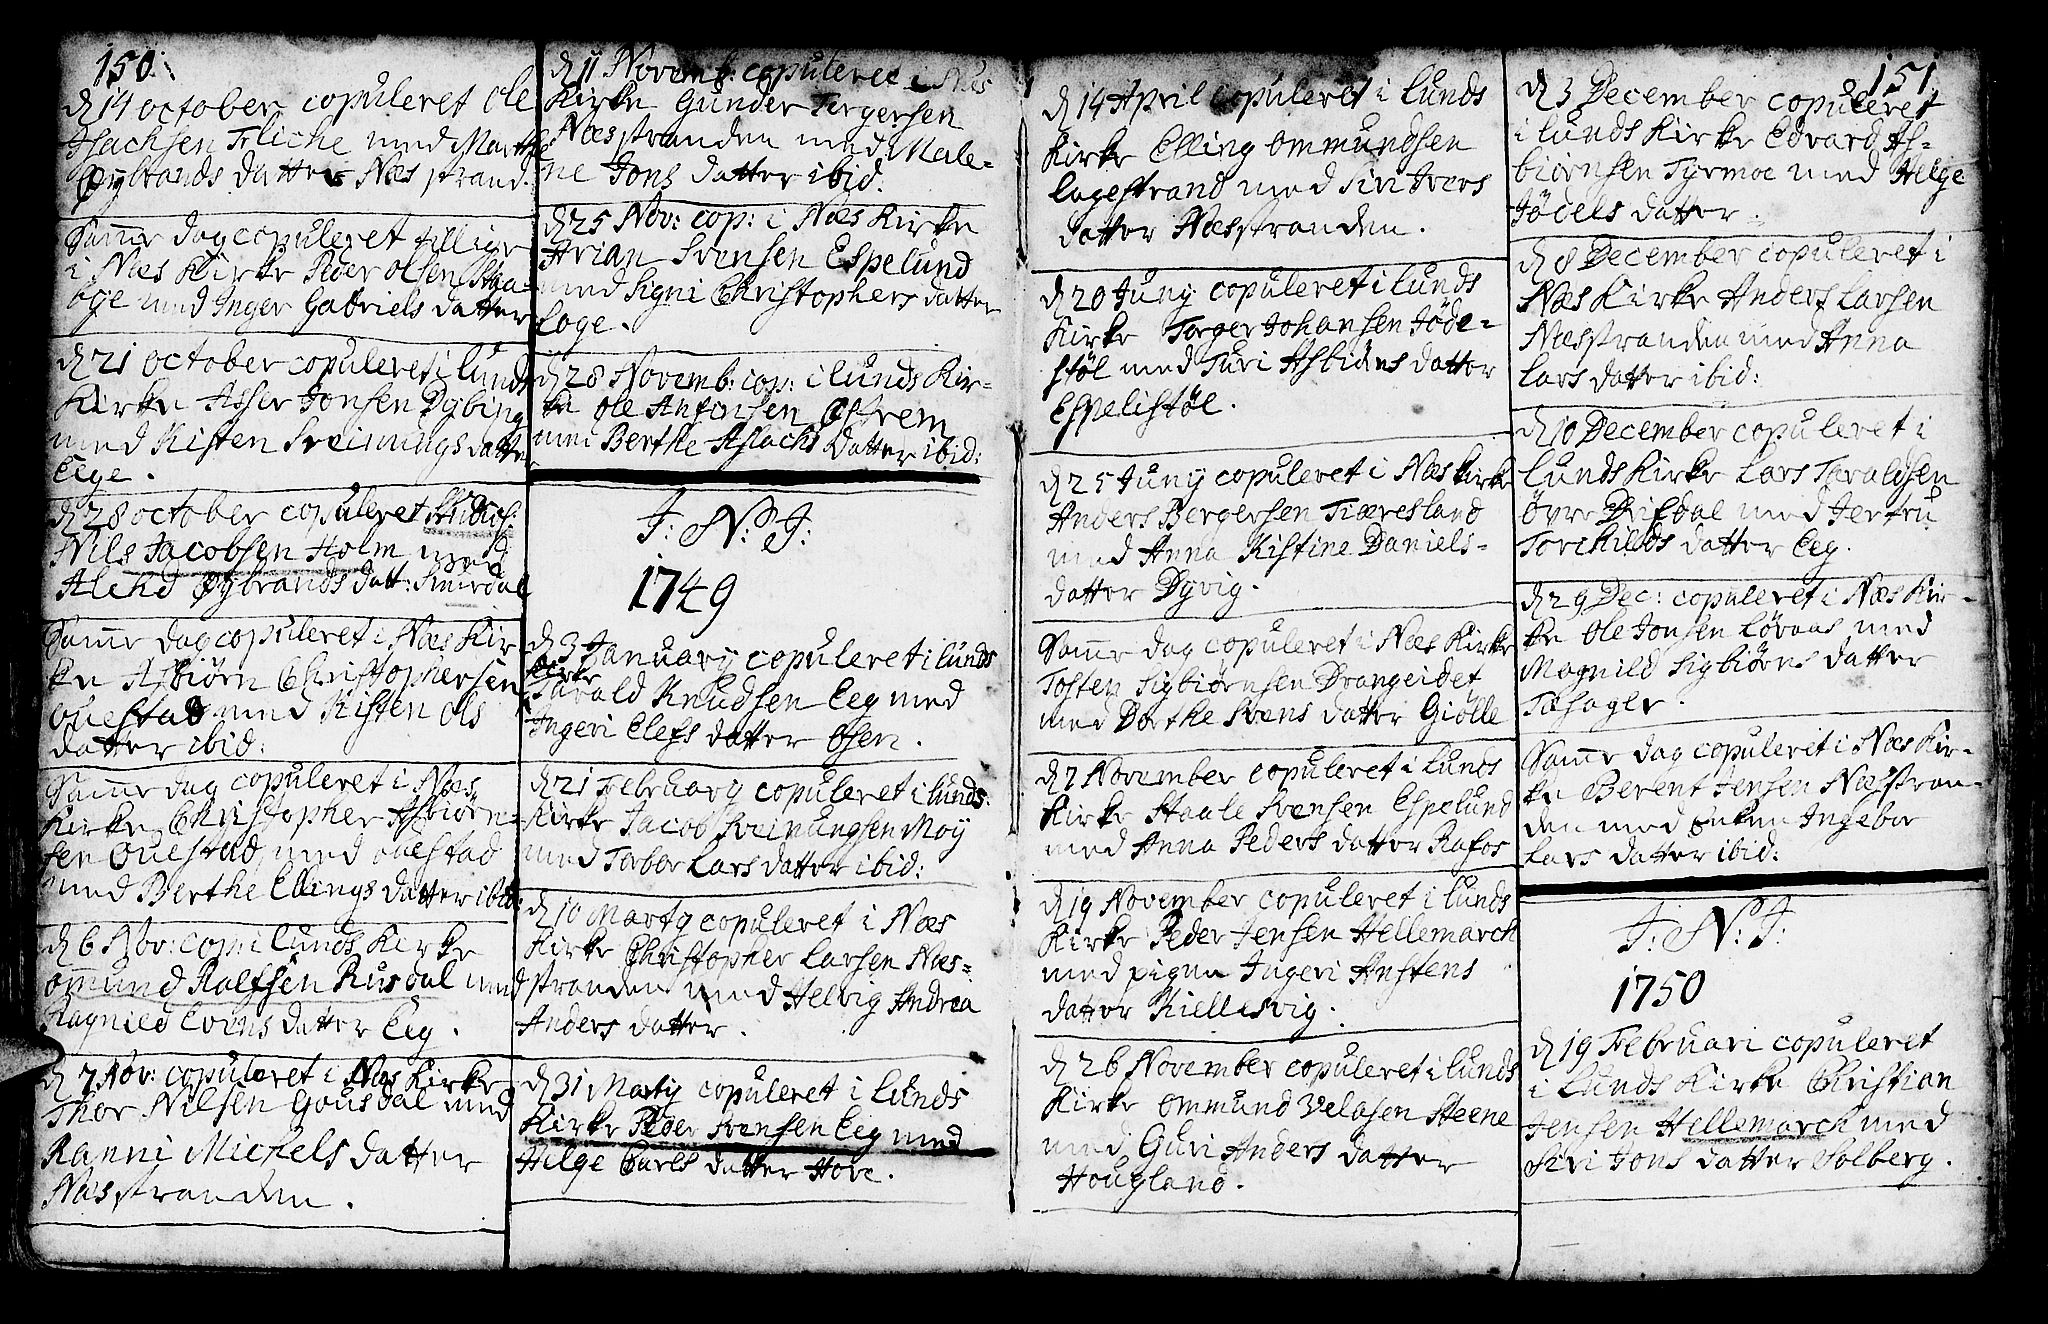 150
d 14 october copuleret Ole
Isachsen Fliche med Marthe
Sÿbrands datter Næsstrand.
Samme dag copuleret tillige
i Næs Kirke Peder Olsen Staa-
bge med Inger Gabriels datter
d 21 october copuleret i Lunds
Kirke Asser Jonsen Dÿbing
med Kisten Sveinungs datter
Eege.
d 28 october copuleret Studios:
Nils Jacobsen Holm med
Alehd Sÿbrands datt: Smirdal
Samme dag copuleret i Næs Kir
ke Asbiørn Christophersen
Ouestad med Kisten Ols
datter ibid:
Samme dag copuleret i Næs
Kirke Christopher Asbiørn-
sen Ouestad med Ouestad
med Berthe Ellings datter ibid:
d 6 Nov: cop: i Lunds Kirke
Ommund Ralfsen Rusdal med
Ragnild Evens datter Eeg.
d 7 Nov: copuleret i Næs Kirke
Thor Nilsen Gousdal med
Ranni Michels datter
Næsstranden.
d 11 Novemb: copuleret i Næs
Kirke Gunder Tergersen
Næsstranden med Male-
ne Jons datter ibid.
d 25 Nov: cop: i Næs Kirke
Arian Svensen Espelund
med Signi Christophers datter
Loge.
d 28 Novemb: cop: i Lunds Kir-
ke Ole Anfinsen Østrem
med Berthe Aslachs Datter ibid:
I: N: J:
1749
d 3 Januarÿ copuleret i Lunds
Kirke
Tarald Knudsen Eeg med
Ingeri Elefs datter Osen.
d 21 Februarÿ copuleret i Lunds
Kirke Jacob Sveinungsen Moÿ
med Torbor Lars datter ibid:
d 10 Martÿ copuleret i Næs
Kirke Christopher Larsen Næs-
stranden med Helvig Andrea
Anders datter.
d 31 Martÿ copuleret i Lunds
Kirke Peder Svensen Eeg med
Helge Carls datter Hove.
151
d 14 April copuleret i Lunds
Kirke Elling Ommundsen
Logestrand med Siri Ivers
datter Næsstranden.
d 20 Junÿ copuleret i Lunds
Kirke Torger Johansen Jøde-
støl med Turi Asbiørns datter
Espelistøl.
d 25 Junÿ copuleret i Næs Kirke
Anders Bergersen Tiæresland
med Anna Kistine Daniels-
datter Dÿvig.
Samme dag copuleret i Næs Kirke
Tosten Sigbiørnsen Drangeidet
med Dorthe Svens datter Giølle
d 7 November copuleret i Lunds
Kirke Staale Svensen Espelund
med Anna Peders datter Rafos
d 19 November copuleret i Lunds
Kirke Peder Jensen Hellemarch
med pigen Ingeri Anstens
datter Kiellesvig.
d 26 November copuleret i Lunds
Kirke Ommund Velasen Steene
med Guri Anders datter
Hougland.
d 3 December copuleret
i Lunds Kirke Edvard As-
biørnsen Tyrmoe med Helge
Jødels datter.
d 8 December copuleret i
Næs Kirke Anders Larsen
Næsstranden med Anna
Lars datter ibid:
d 10 December copuleret i
Lunds Kirke Lars Taraldsen
øvre Drifdal med Jertru
Torchilds datter Eeg.
d 29 Dec: copuleret i Næs Kir-
ke Ole Jonsen Løvaas med
Magnild Sigbiørns datter
Tæsager.
Samme dag copuleret i Næs Kir-
ke Berent Jensen Næsstran-
den med Enken Ingebor
Lars datter ibid:
I: N: J:
1750
d 19 Februari copuleret
i Lunds Kirke Christian
Jensen Hellemarch med
Siri Jons datter Solberg.